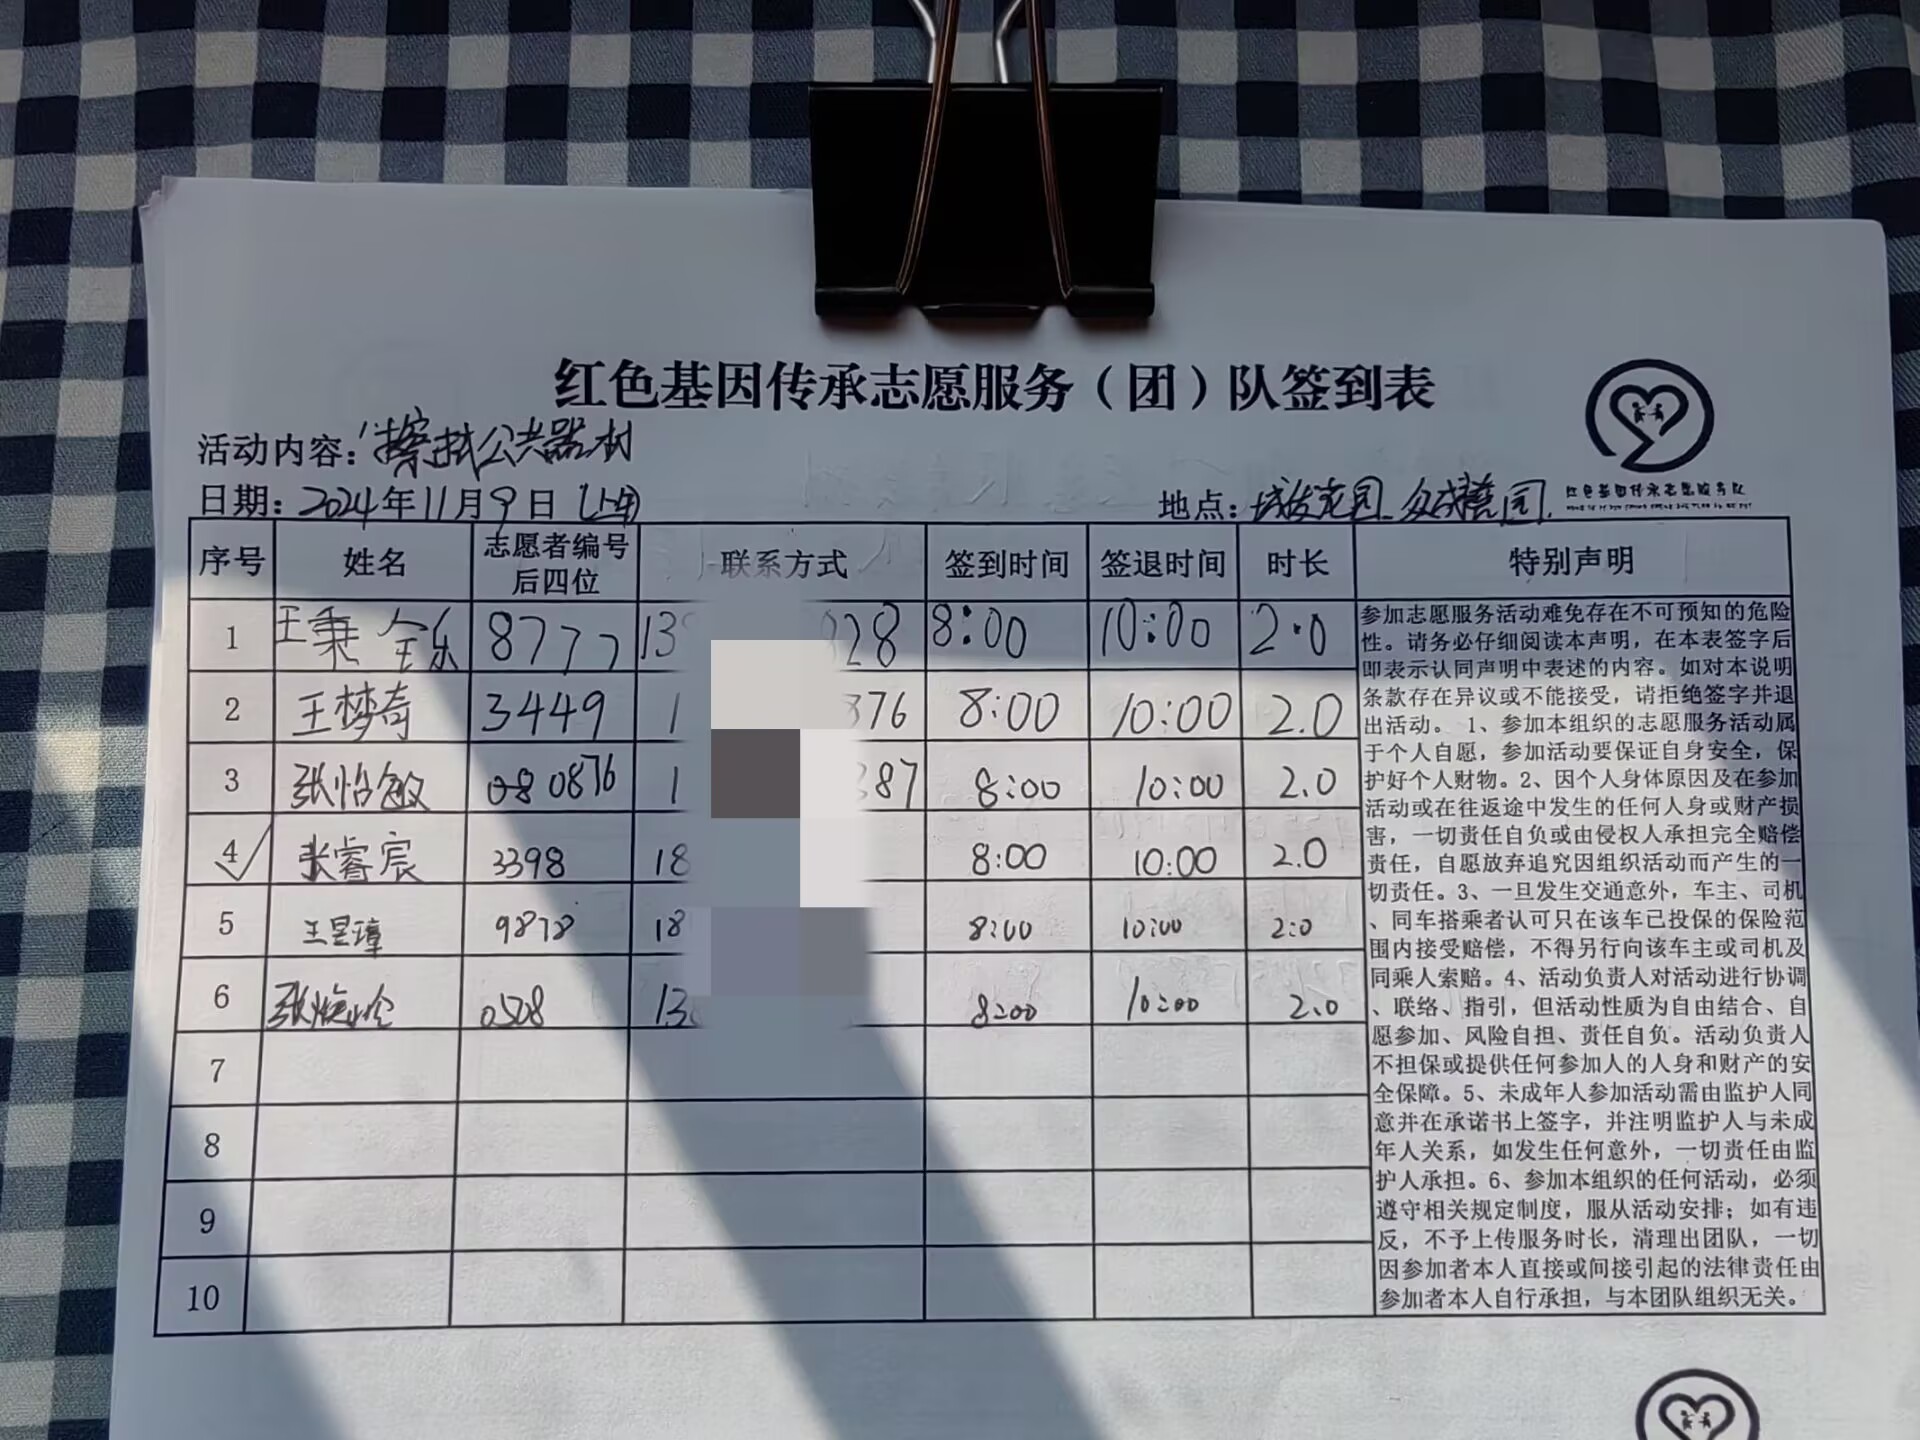 红色基因传承志愿服务（团）队签到表
活动内容：擦拭公共器材
日期：2024年11月9日（上午）
地点：城发花园
红色基因传承志愿服务队
序号 姓名 志愿者编号后四位 联系方式 签到时间 签退时间 时长 特别声明
1 王秉全乐 8777 13 928 8:00 10:00 2.0
2 王梦奇 3449 1 376 8:00 10:00 2.0
3 张怡敏 080876 1 387 8:00 10:00 2.0
4 张睿宸 3398 18 8:00 10:00 2.0
5 王昱璋 9878 18 8:00 10:00 2:0
6 0508 13 8:00 10:00 2.0
7
8
9
10
参加志愿服务活动难免存在不可预知的危险
性。请务必仔细阅读本声明，在本表签字后
即表示认同声明中表述的内容。如对本说明
条款存在异议或不能接受，请拒绝签字并退
出活动。1、参加本组织的志愿服务活动属
于个人自愿，参加活动要保证自身安全，保
护好个人财物。2、因个人身体原因及在参加
活动或在往返途中发生的任何人身或财产损
害，一切责任自负或由侵权人承担完全赔偿
责任，自愿放弃追究因组织活动而产生的一
切责任。3、一旦发生交通意外，车主、司机
、同车搭乘者认可只在该车已投保的保险范
围内接受赔偿，不得另行向该车主或司机及
同乘人索赔。4、活动负责人对活动进行协调
、联络、指引，但活动性质为自由结合、自
愿参加、风险自担、责任自负。活动负责人
不担保或提供任何参加人的人身和财产的安
全保障。5、未成年人参加活动需由监护人同
意并在承诺书上签字，并注明监护人与未成
年人关系，如发生任何意外，一切责任由监
护人承担。6、参加本组织的任何活动，必须
遵守相关规定制度，服从活动安排；如有违
反，不予上传服务时长，清理出团队，一切
因参加者本人直接或间接引起的法律责任由
参加者本人自行承担，与本团队组织无关。